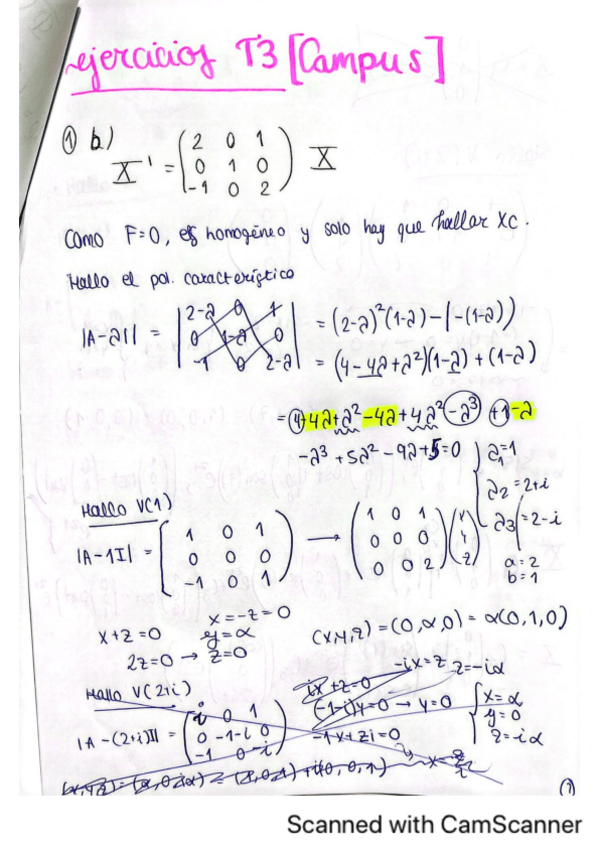 ejercicios T3 [Campus]
① b.)
X' = (2 0 1
0 1 0
-1 0 2) X
Como F=0, es homogéneo y solo hay que hallar Xc.
Hallo el pol. característico
|A-λI| = |2-λ 0 1
0 1-λ 0
-1 0 2-λ|
= (2-λ)²(1-λ)-(-(1-λ))
= (4-4λ+λ²)(1-λ)+(1-λ)
= 4-4λ+λ²-4λ+4λ²-λ³+1-λ
-λ³+5λ²-9λ+5=0
λ₁=1
λ₂=2+i
λ3=2-i
a=2
b=1
Hallo V(1)
|A-1I| = (1 0 1
0 0 0
-1 0 1)
→ (1 0 1
0 0 0
0 0 2)
x+z=0
2z=0 → z=0
x=-z=0
y=α
(x,y,z)=(0,α,0)=α(0,1,0)
Hallo V(2+i)
|A-(2+i)I| = (-i 0 1
0 -1-i 0
-1 0 -i)
ix+z=0
-ix=z
z=-iα
(-1-i)y=0 → y=0
x=α
y=0
z=-iα
Scanned with CamScanner